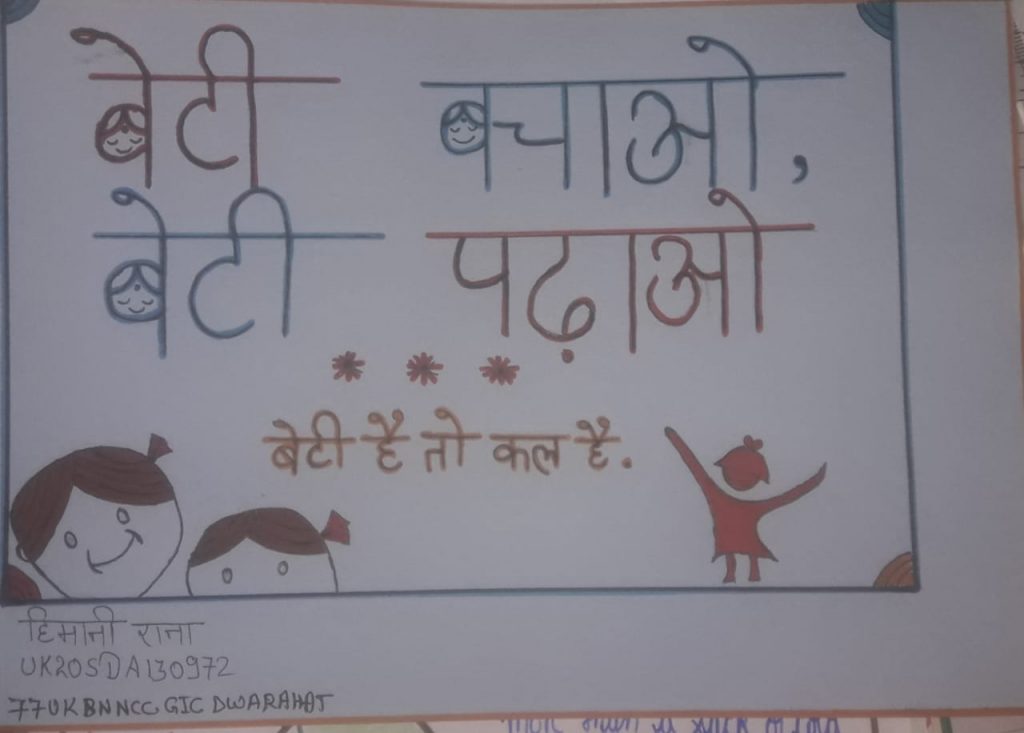 बेटी बचाओ,
बेटी पढ़ाओ
बेटी है तो कल है.
हिमानी राना
UK20SDA130972
77UKBNNCC GIC DWARAHAT